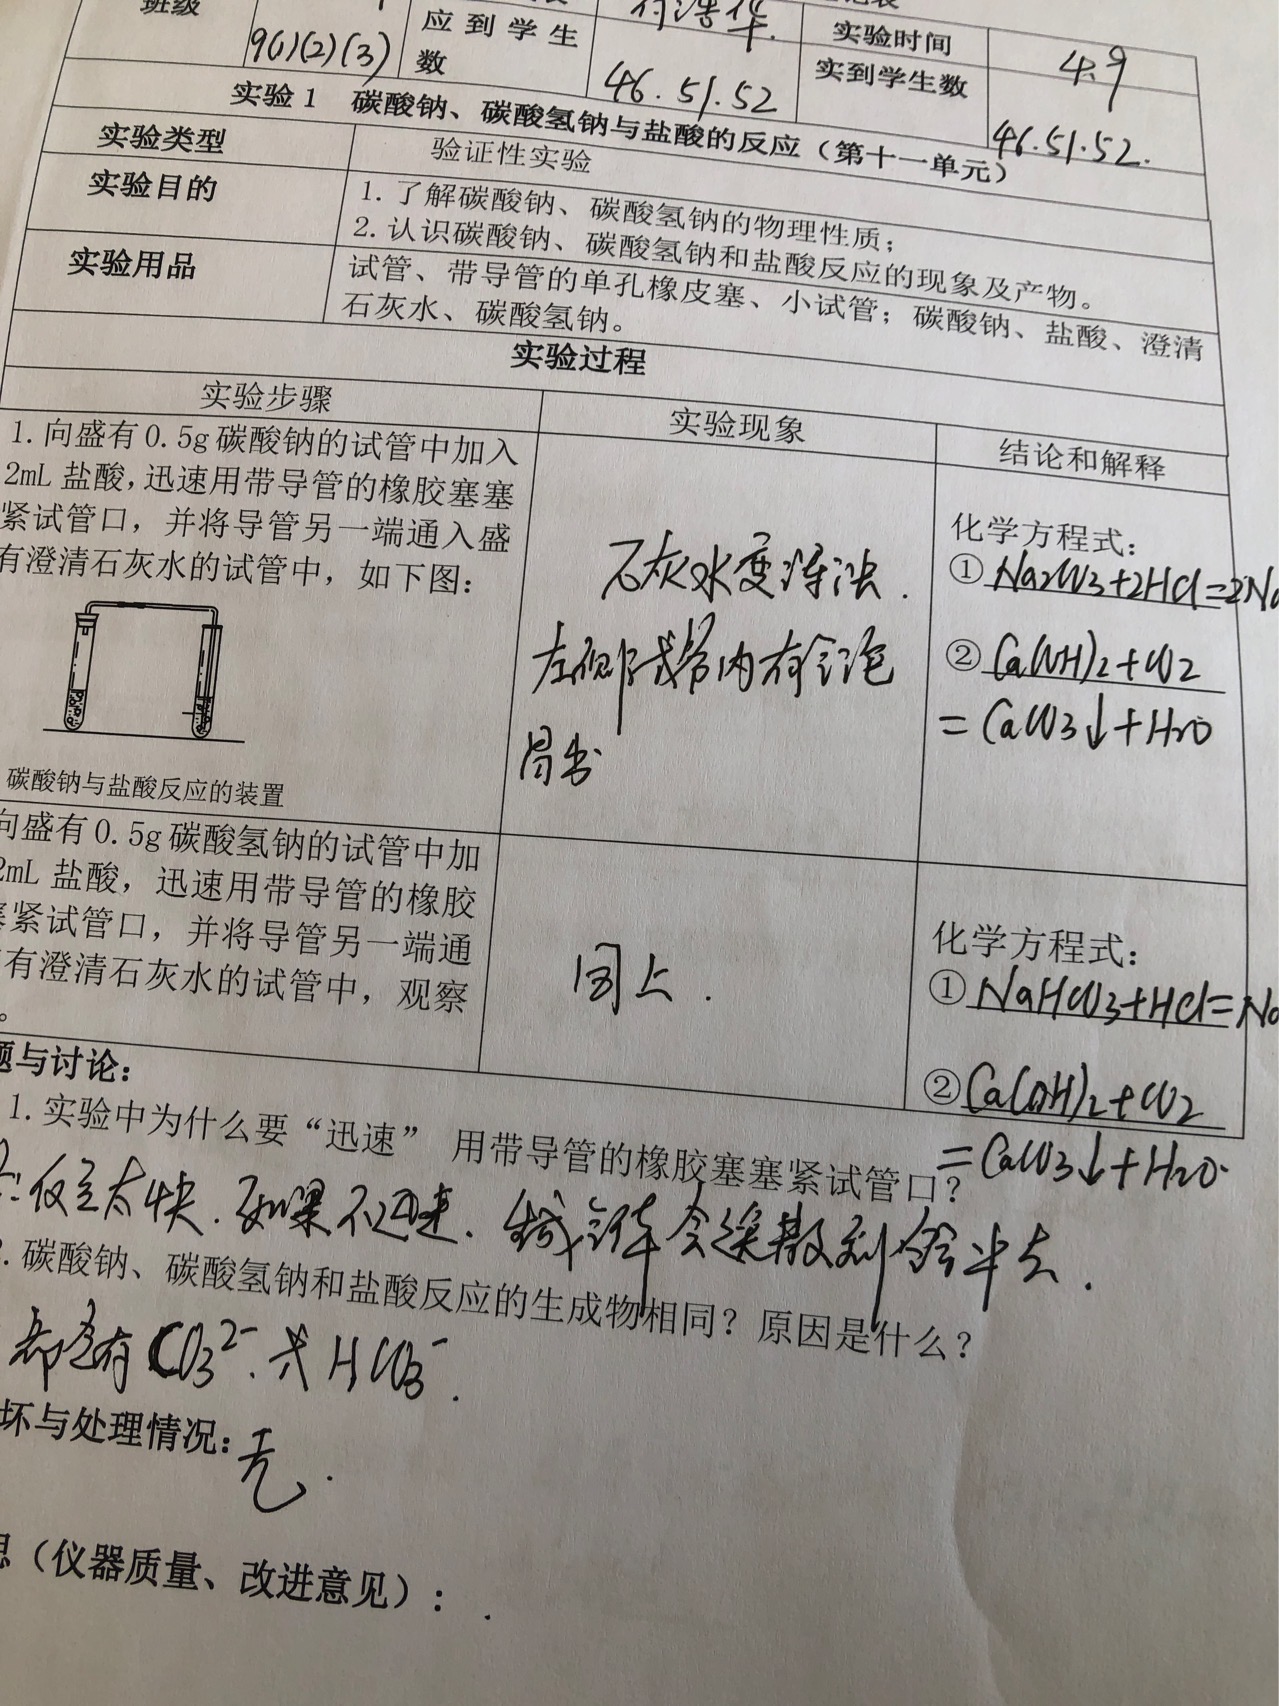 班级
9(1)(2)(3)
应到学生数
46.51.52
实验时间
4.9
实到学生数
46.51.52.
实验1 碳酸钠、碳酸氢钠与盐酸的反应（第十一单元）
实验类型
验证性实验
实验目的
1.了解碳酸钠、碳酸氢钠的物理性质；
2.认识碳酸钠、碳酸氢钠和盐酸反应的现象及产物。
实验用品
试管、带导管的单孔橡皮塞、小试管；碳酸钠、盐酸、澄清
石灰水、碳酸氢钠。
实验过程
实验步骤
实验现象
结论和解释
1.向盛有0.5g碳酸钠的试管中加入
2mL 盐酸,迅速用带导管的橡胶塞塞
紧试管口，并将导管另一端通入盛
有澄清石灰水的试管中，如下图：
碳酸钠与盐酸反应的装置
石灰水变浑浊.
左侧试管内有气泡
冒出
化学方程式：
①Na2CO3+2HCl=2Na
②Ca(OH)2+CO2
=CaCO3↓+H2O
向盛有0.5g碳酸氢钠的试管中加
2mL 盐酸，迅速用带导管的橡胶
塞紧试管口，并将导管另一端通
有澄清石灰水的试管中，观察
。
同上.
化学方程式：
①NaHCO3+HCl=Na
②Ca(OH)2+CO2
=CaCO3↓+H2O.
题与讨论：
1.实验中为什么要“迅速” 用带导管的橡胶塞塞紧试管口？
反应太快.如果不迅速.生成气体会逸散到空气中去.
.碳酸钠、碳酸氢钠和盐酸反应的生成物相同？原因是什么？
都含有CO3²⁻.或HCO3⁻.
坏与处理情况：无.
思（仪器质量、改进意见）：.